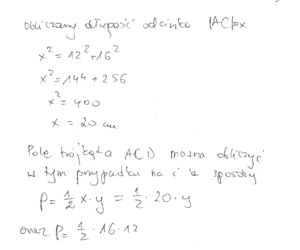 Obliczamy długość odcinka |AC|=x
x²=12²+16²
x²=144+256
x²=400
x=20 cm
Pole trójkąta ACD można obliczyć
w tym przypadku na sposoby
P=½x·y=½·20·y
oraz P=½·16·12